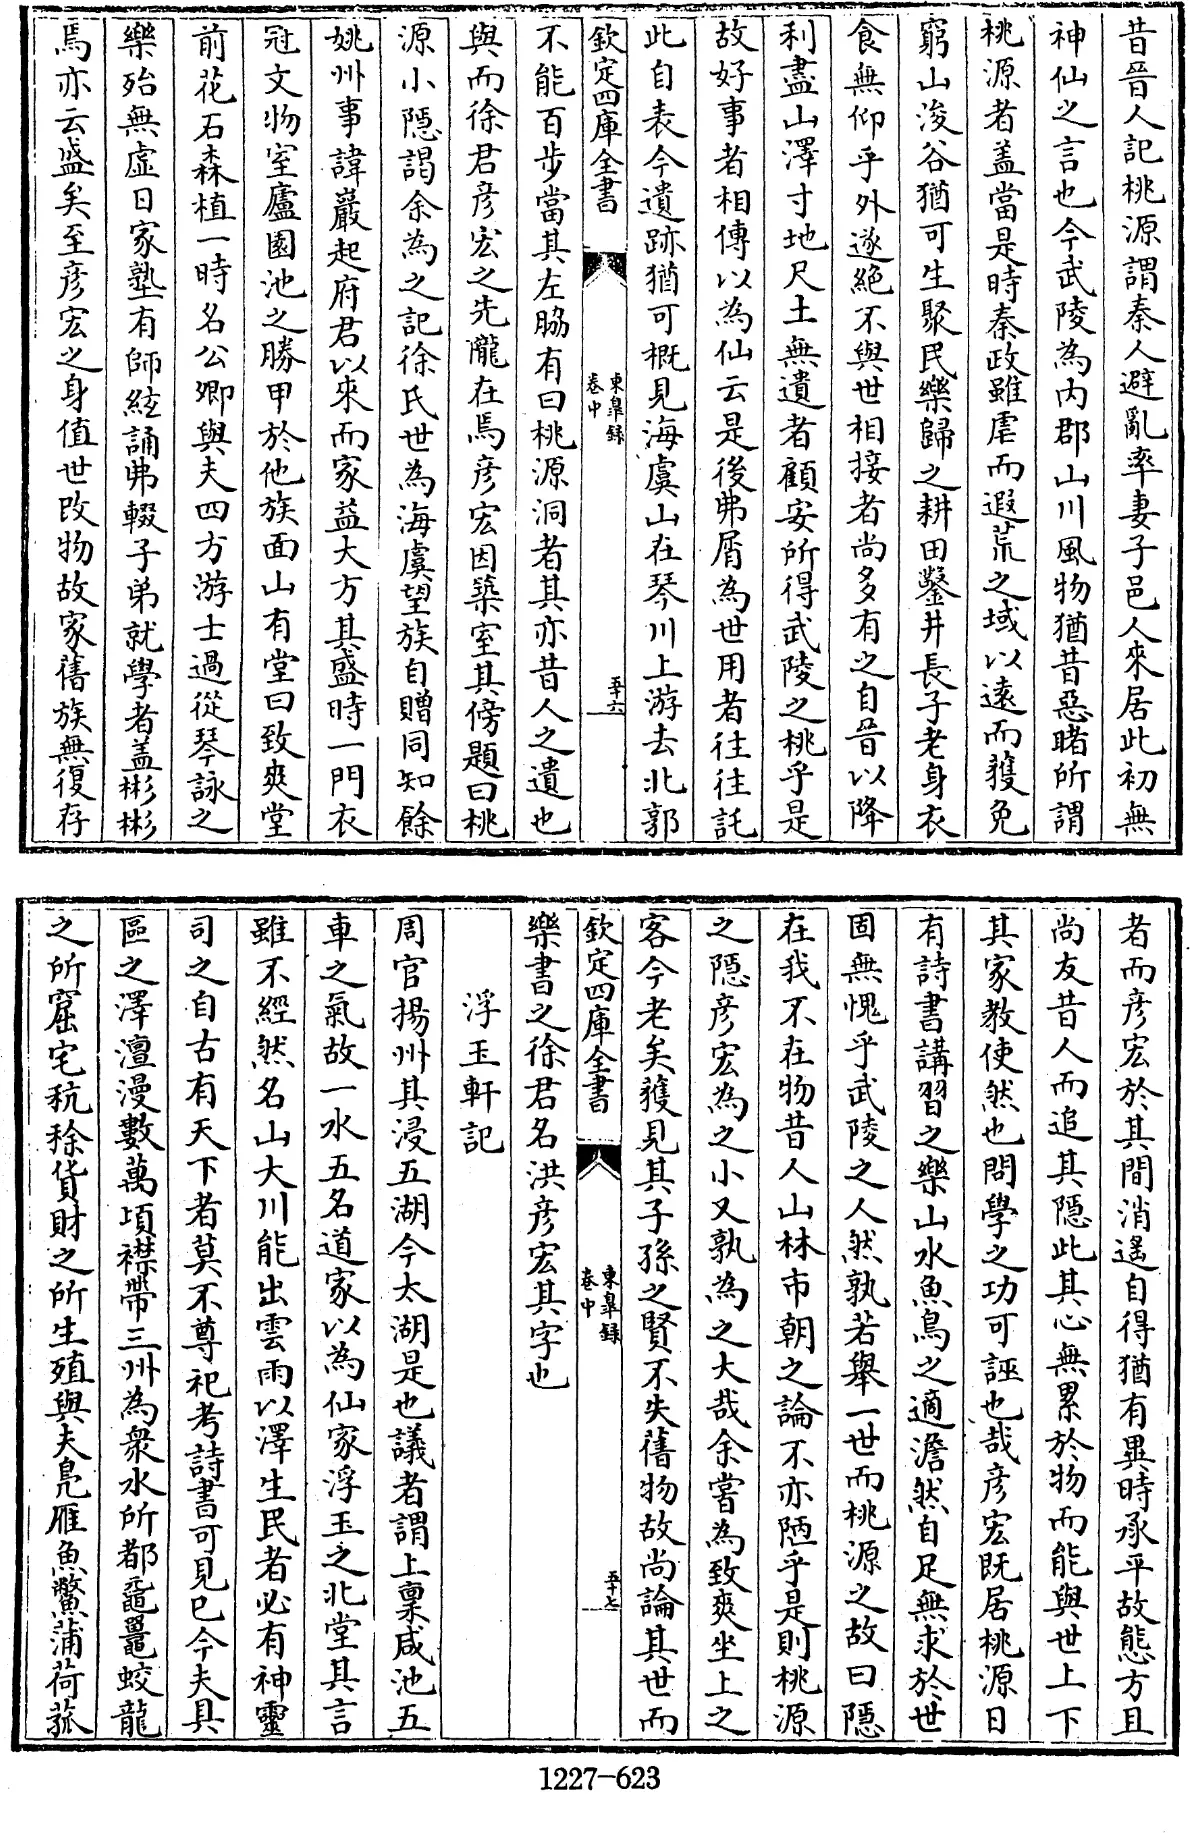 昔晉人記桃源謂秦人避亂率妻子邑人來居此初無
神仙之言也今武陵為内郡山川風物猶昔惡睹所謂
桃源者蓋當是時秦政雖虐而遐荒之域以遠而獲免
窮山浚谷猶可生聚民樂歸之耕田鑿井長子老身衣
食無仰乎外遂絶不與世相接者尚多有之自晉以降
利盡山澤寸地尺土無遺者顧安所得武陵之桃乎是
故好事者相傳以為仙云是後弗屑為世用者往往託
此自表今遺跡猶可概見海虞山在琴川上游去北郭
欽定四庫全書
東臯錄
卷中
五十六
不能百步當其左脇有曰桃源洞者其亦昔人之遺也
與而徐君彥宏之先隴在焉彥宏因築室其傍題曰桃
源小隱謁余為之記徐氏世為海虞望族自贈同知餘
姚州事諱巖起府君以來而家益大方其盛時一門衣
冠文物室廬園池之勝甲於他族面山有堂曰致爽堂
前花石森植一時名公卿與夫四方游士過從琴詠之
樂殆無虚日家塾有師絃誦弗輟子弟就學者蓋彬彬
焉亦云盛矣至彥宏之身值世改物故家舊族無復存
者而彥宏於其間消遥自得猶有異時承平故態方且
尚友昔人而追其隱此其心無累於物而能與世上下
其家教使然也問學之功可誣也哉彥宏既居桃源日
有詩書講習之樂山水魚鳥之適澹然自足無求於世
固無愧乎武陵之人然孰若舉一世而桃源之故曰隱
在我不在物昔人山林市朝之論不亦陋乎是則桃源
之隱彥宏為之小又孰為之大哉余嘗為致爽坐上之
客今老矣獲見其子孫之賢不失舊物故尚論其世而
欽定四庫全書
東臯錄
卷中
五十七
樂書之徐君名洪彥宏其字也
浮玉軒記
周官揚州其浸五湖今太湖是也議者謂上稟咸池五
車之氣故一水五名道家以為仙家浮玉之北堂其言
雖不經然名山大川能出雲雨以澤生民者必有神靈
司之自古有天下者莫不尊祀考詩書可見已今夫具
區之澤澶漫數萬頃襟帶三州為衆水所都黿鼉蛟龍
之所窟宅秔稌貨財之所生殖與夫鳧雁魚鱉蒲荷菰
1227-623